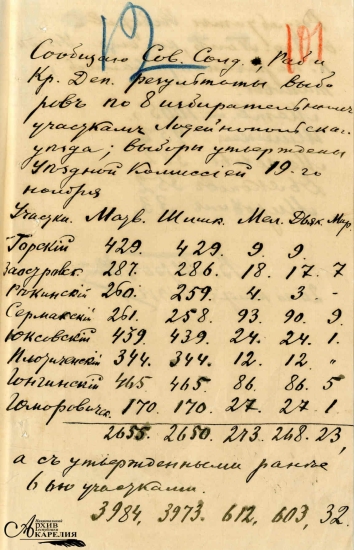 12 101
Сообщаю Сов. Солд., Раб и
Кр. Деп. результаты выбо
ровъ по 8 избирательнымъ
участкамъ Лодейнопольскаго
уѣзда; выборы утверждены
Уѣздной Комиссіей 19-го
ноября
Участки. Матв. Шишк. Мел. Дьяк. Мар.
Горскій 429. 429. 9 9.
Заостровск. 287. 286. 18. 17. 7
260. 259. 4. 3 -
Сермакскій 261. 258. 93. 90. 9
Юксовскій 439. 439. 24. 24. 1.
344. 344. 12. 12. "
465. 465. 86. 86. 5
170. 170. 27. 27. 1
2655. 2650. 273. 268. 23,
а съ утвержденными ранѣе
6ью участками.
3984, 3973. 612, 603, 32.
Национальный
АРХИВ
Республики
КАРЕЛИЯ